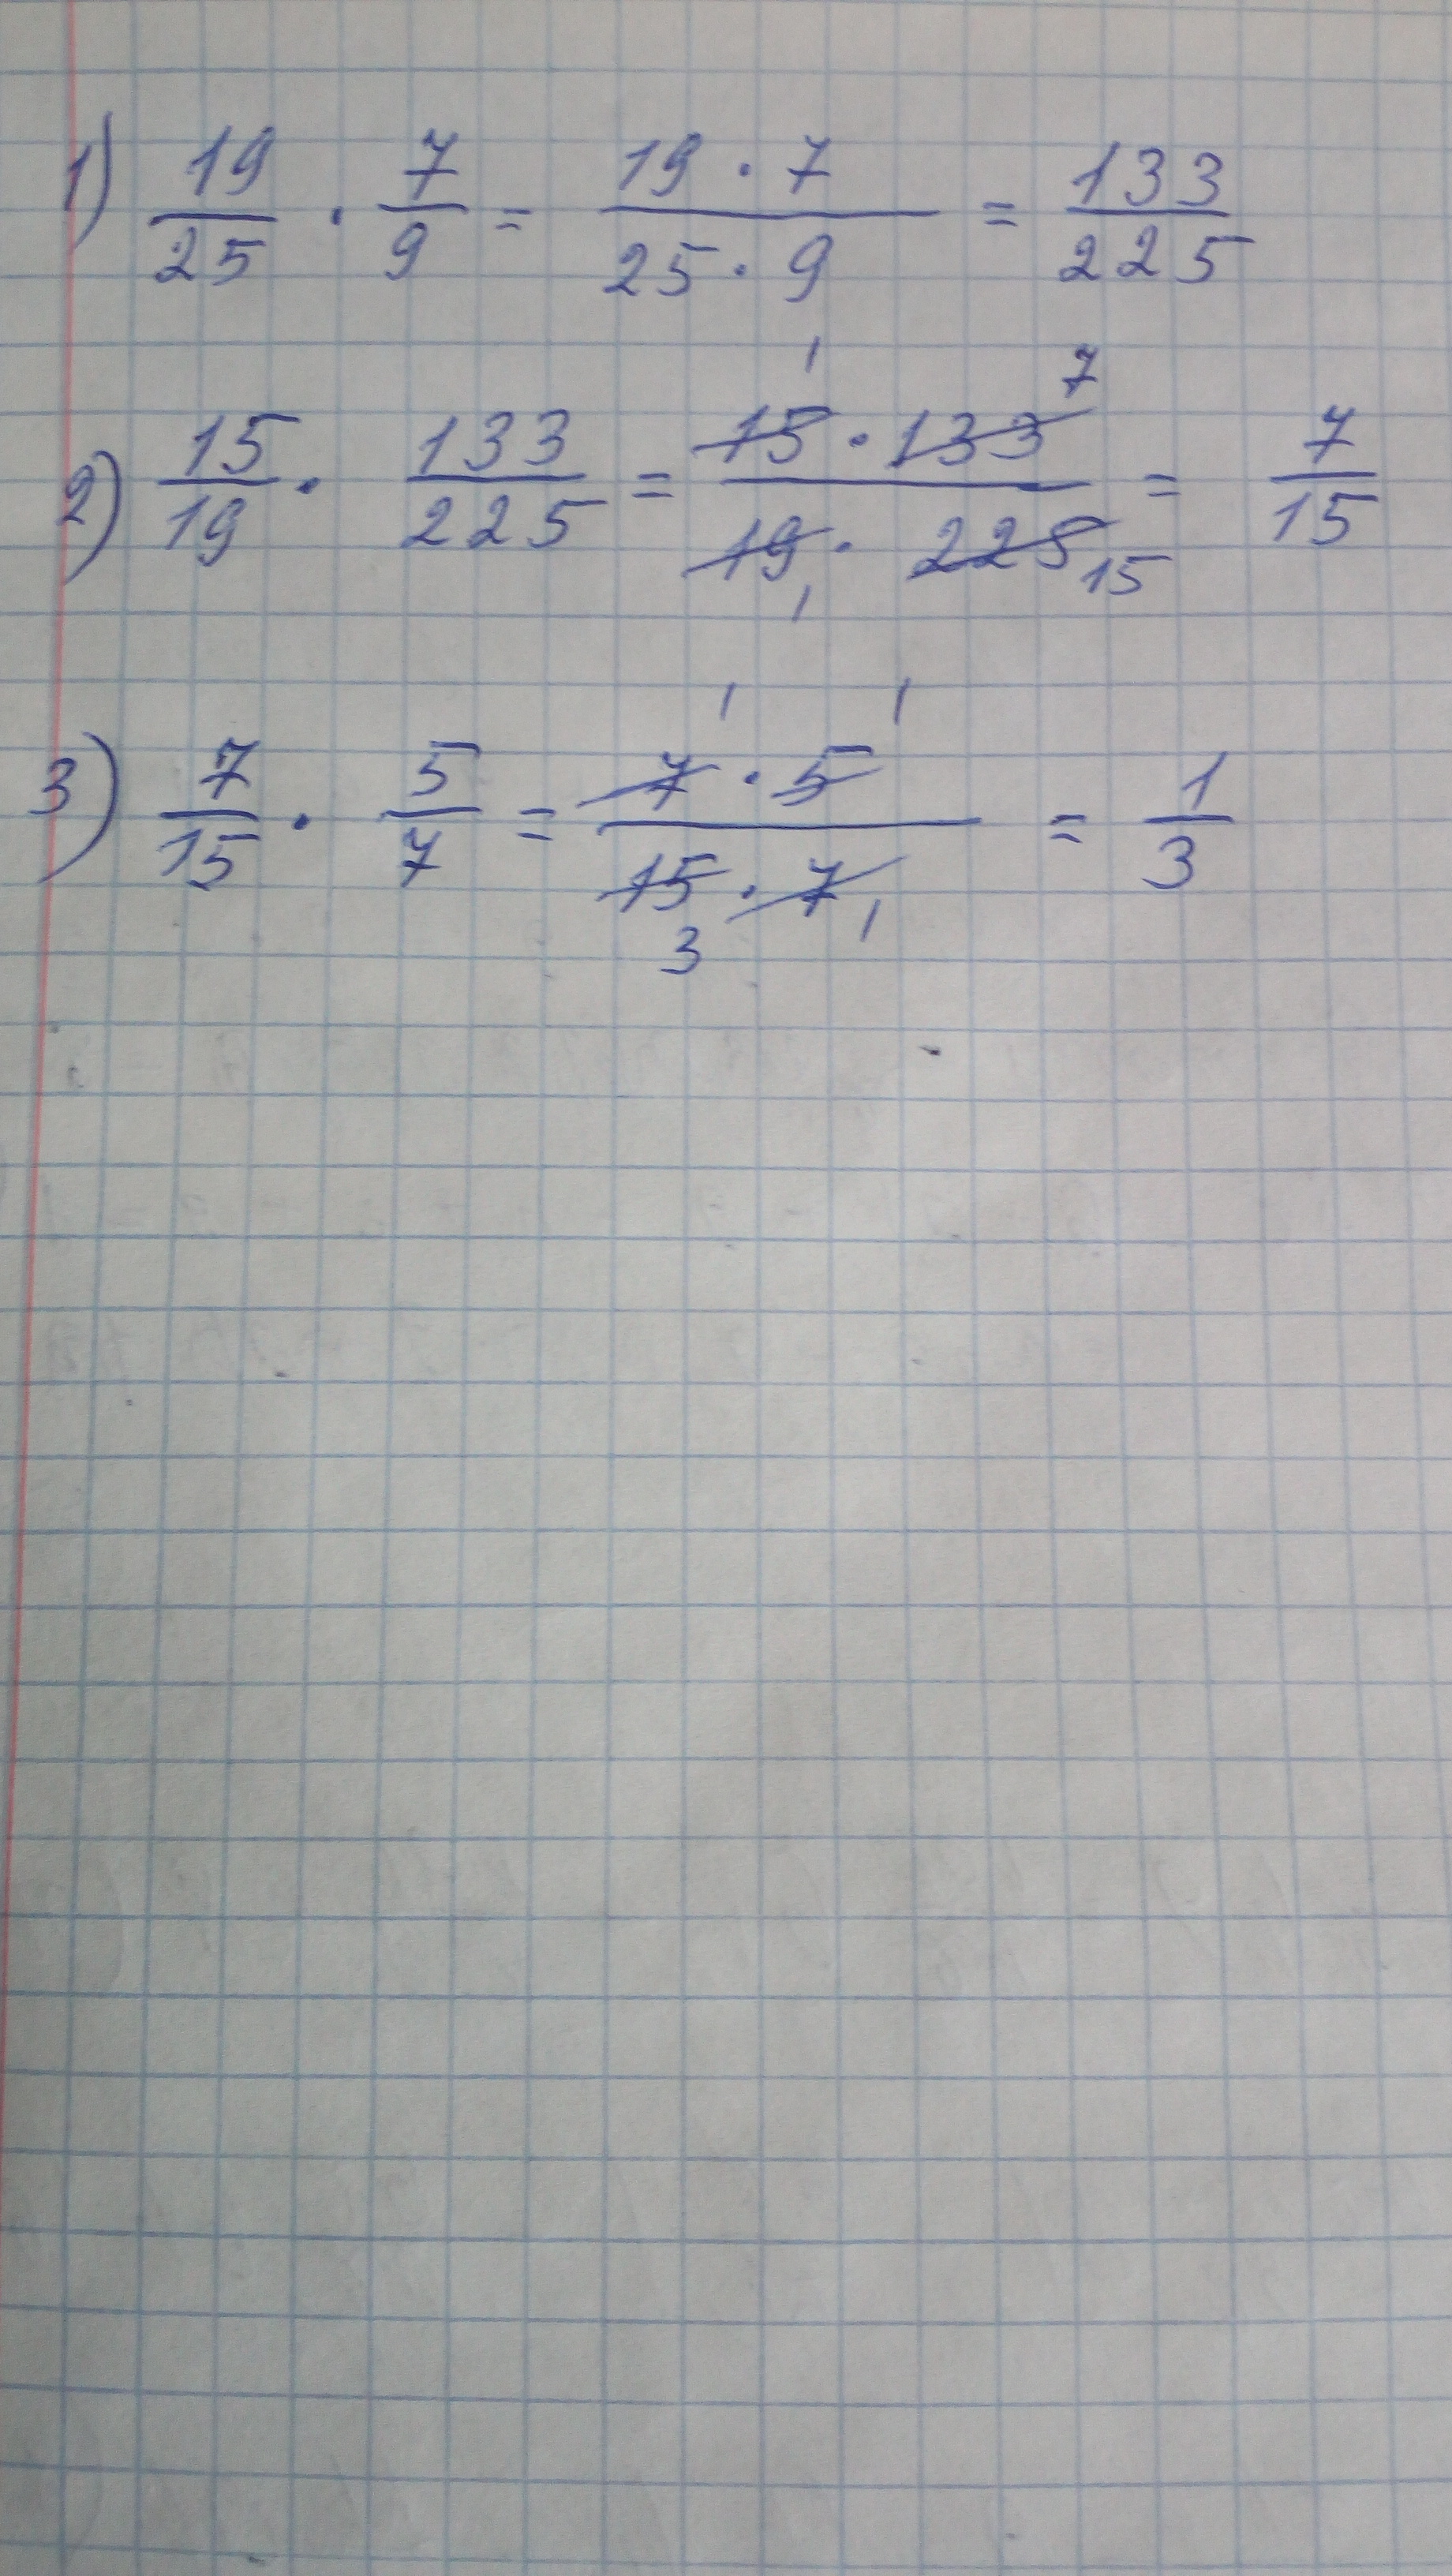 1) 19/25 · 7/9 = 19 · 7/25 · 9 = 133/225
2) 15/19 · 133/225 = 15 1 · 133 7/19 1 · 225 15 = 7/15
3) 7/15 · 5/7 = 7 1 · 5 1/15 3 · 7 1 = 1/3